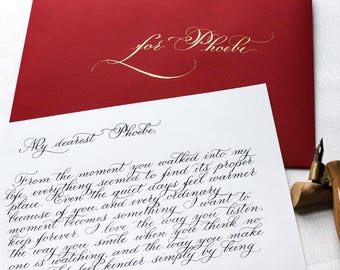 for Phoebe
My dearest Phoebe,
From the moment you walked into my
life, everything seemed to find its proper
place. Even the quiet days feel warmer
because of you, and every ordinary
moment becomes something I want to
keep forever. I love the way you listen,
the way you smile when you think no
one is watching, and the way you make
feel kinder simply by being